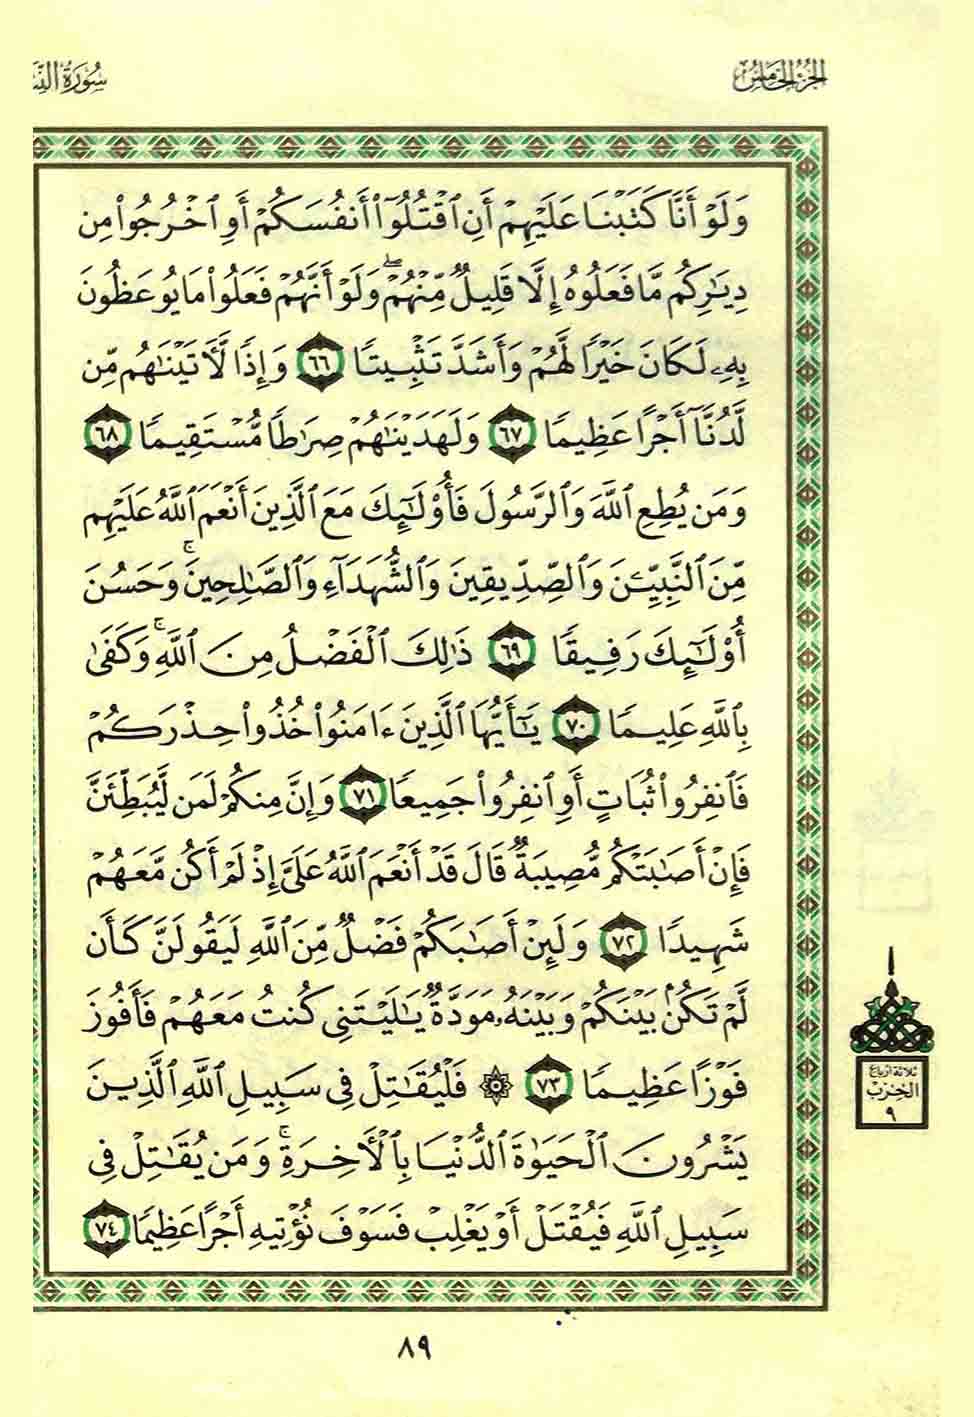 الجزء الخامس
سورة النس
وَلَوْ أَنَّا كَتَبْنَا عَلَيْهِمْ أَنِ ٱقْتُلُوٓا۟ أَنفُسَكُمْ أَوِ ٱخْرُجُوا۟ مِن
دِيَـٰرِكُم مَّا فَعَلُوهُ إِلَّا قَلِيلٌ مِّنْهُمْ ۖ وَلَوْ أَنَّهُمْ فَعَلُوا۟ مَا يُوعَظُونَ
بِهِۦ لَكَانَ خَيْرًا لَّهُمْ وَأَشَدَّ تَثْبِيتًا ٦٦ وَإِذًا لَّـَٔاتَيْنَـٰهُم مِّن
لَّدُنَّآ أَجْرًا عَظِيمًا ٦٧ وَلَهَدَيْنَـٰهُمْ صِرَٰطًا مُّسْتَقِيمًا ٦٨
وَمَن يُطِعِ ٱللَّهَ وَٱلرَّسُولَ فَأُو۟لَـٰٓئِكَ مَعَ ٱلَّذِينَ أَنْعَمَ ٱللَّهُ عَلَيْهِم
مِّنَ ٱلنَّبِيِّـۧنَ وَٱلصِّدِّيقِينَ وَٱلشُّهَدَآءِ وَٱلصَّـٰلِحِينَ ۚ وَحَسُنَ
أُو۟لَـٰٓئِكَ رَفِيقًا ٦٩ ذَٰلِكَ ٱلْفَضْلُ مِنَ ٱللَّهِ ۚ وَكَفَىٰ
بِٱللَّهِ عَلِيمًا ٧٠ يَـٰٓأَيُّهَا ٱلَّذِينَ ءَامَنُوا۟ خُذُوا۟ حِذْرَكُمْ
فَٱنفِرُوا۟ ثُبَاتٍ أَوِ ٱنفِرُوا۟ جَمِيعًا ٧١ وَإِنَّ مِنكُمْ لَمَن لَّيُبَطِّئَنَّ
فَإِنْ أَصَـٰبَتْكُم مُّصِيبَةٌ قَالَ قَدْ أَنْعَمَ ٱللَّهُ عَلَىَّ إِذْ لَمْ أَكُن مَّعَهُمْ
شَهِيدًا ٧٢ وَلَئِنْ أَصَـٰبَكُمْ فَضْلٌ مِّنَ ٱللَّهِ لَيَقُولَنَّ كَأَن
لَّمْ تَكُنۢ بَيْنَكُمْ وَبَيْنَهُۥ مَوَدَّةٌ يَـٰلَيْتَنِى كُنتُ مَعَهُمْ فَأَفُوزَ
فَوْزًا عَظِيمًا ٧٣ ۞ فَلْيُقَـٰتِلْ فِى سَبِيلِ ٱللَّهِ ٱلَّذِينَ
يَشْرُونَ ٱلْحَيَوٰةَ ٱلدُّنْيَا بِٱلْـَٔاخِرَةِ ۚ وَمَن يُقَـٰتِلْ فِى
سَبِيلِ ٱللَّهِ فَيُقْتَلْ أَوْ يَغْلِبْ فَسَوْفَ نُؤْتِيهِ أَجْرًا عَظِيمًا ٧٤
ثلاثة أرباع
الحزب
٩
٨٩